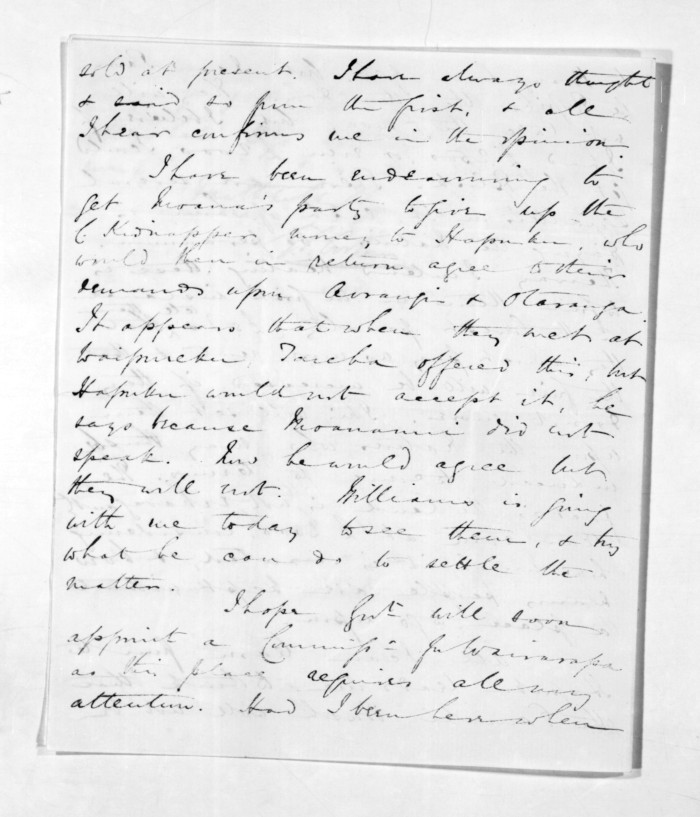 sold at present. I have always thought
& said so from the first, & all
I hear confirms me in the opinion.
I have been endeavouring to
get Moanan's party to give up the
C Kidnappers money to Hapuku, who
would then in return agree to their
demands upon Aorangi & Otaranga.
It appears that when they met at
Waipukurau, Tareha offered this, but
Hapuku would not accept it, he
says because Moananui did not
speak. Now he would agree but
they will not. Williams is going
with me today to see them, & try
what he can do to settle the
matter.
I hope Govt will soon
appoint a Commissr for Wairarapa
as this place requires all my
attention. Had I been here when